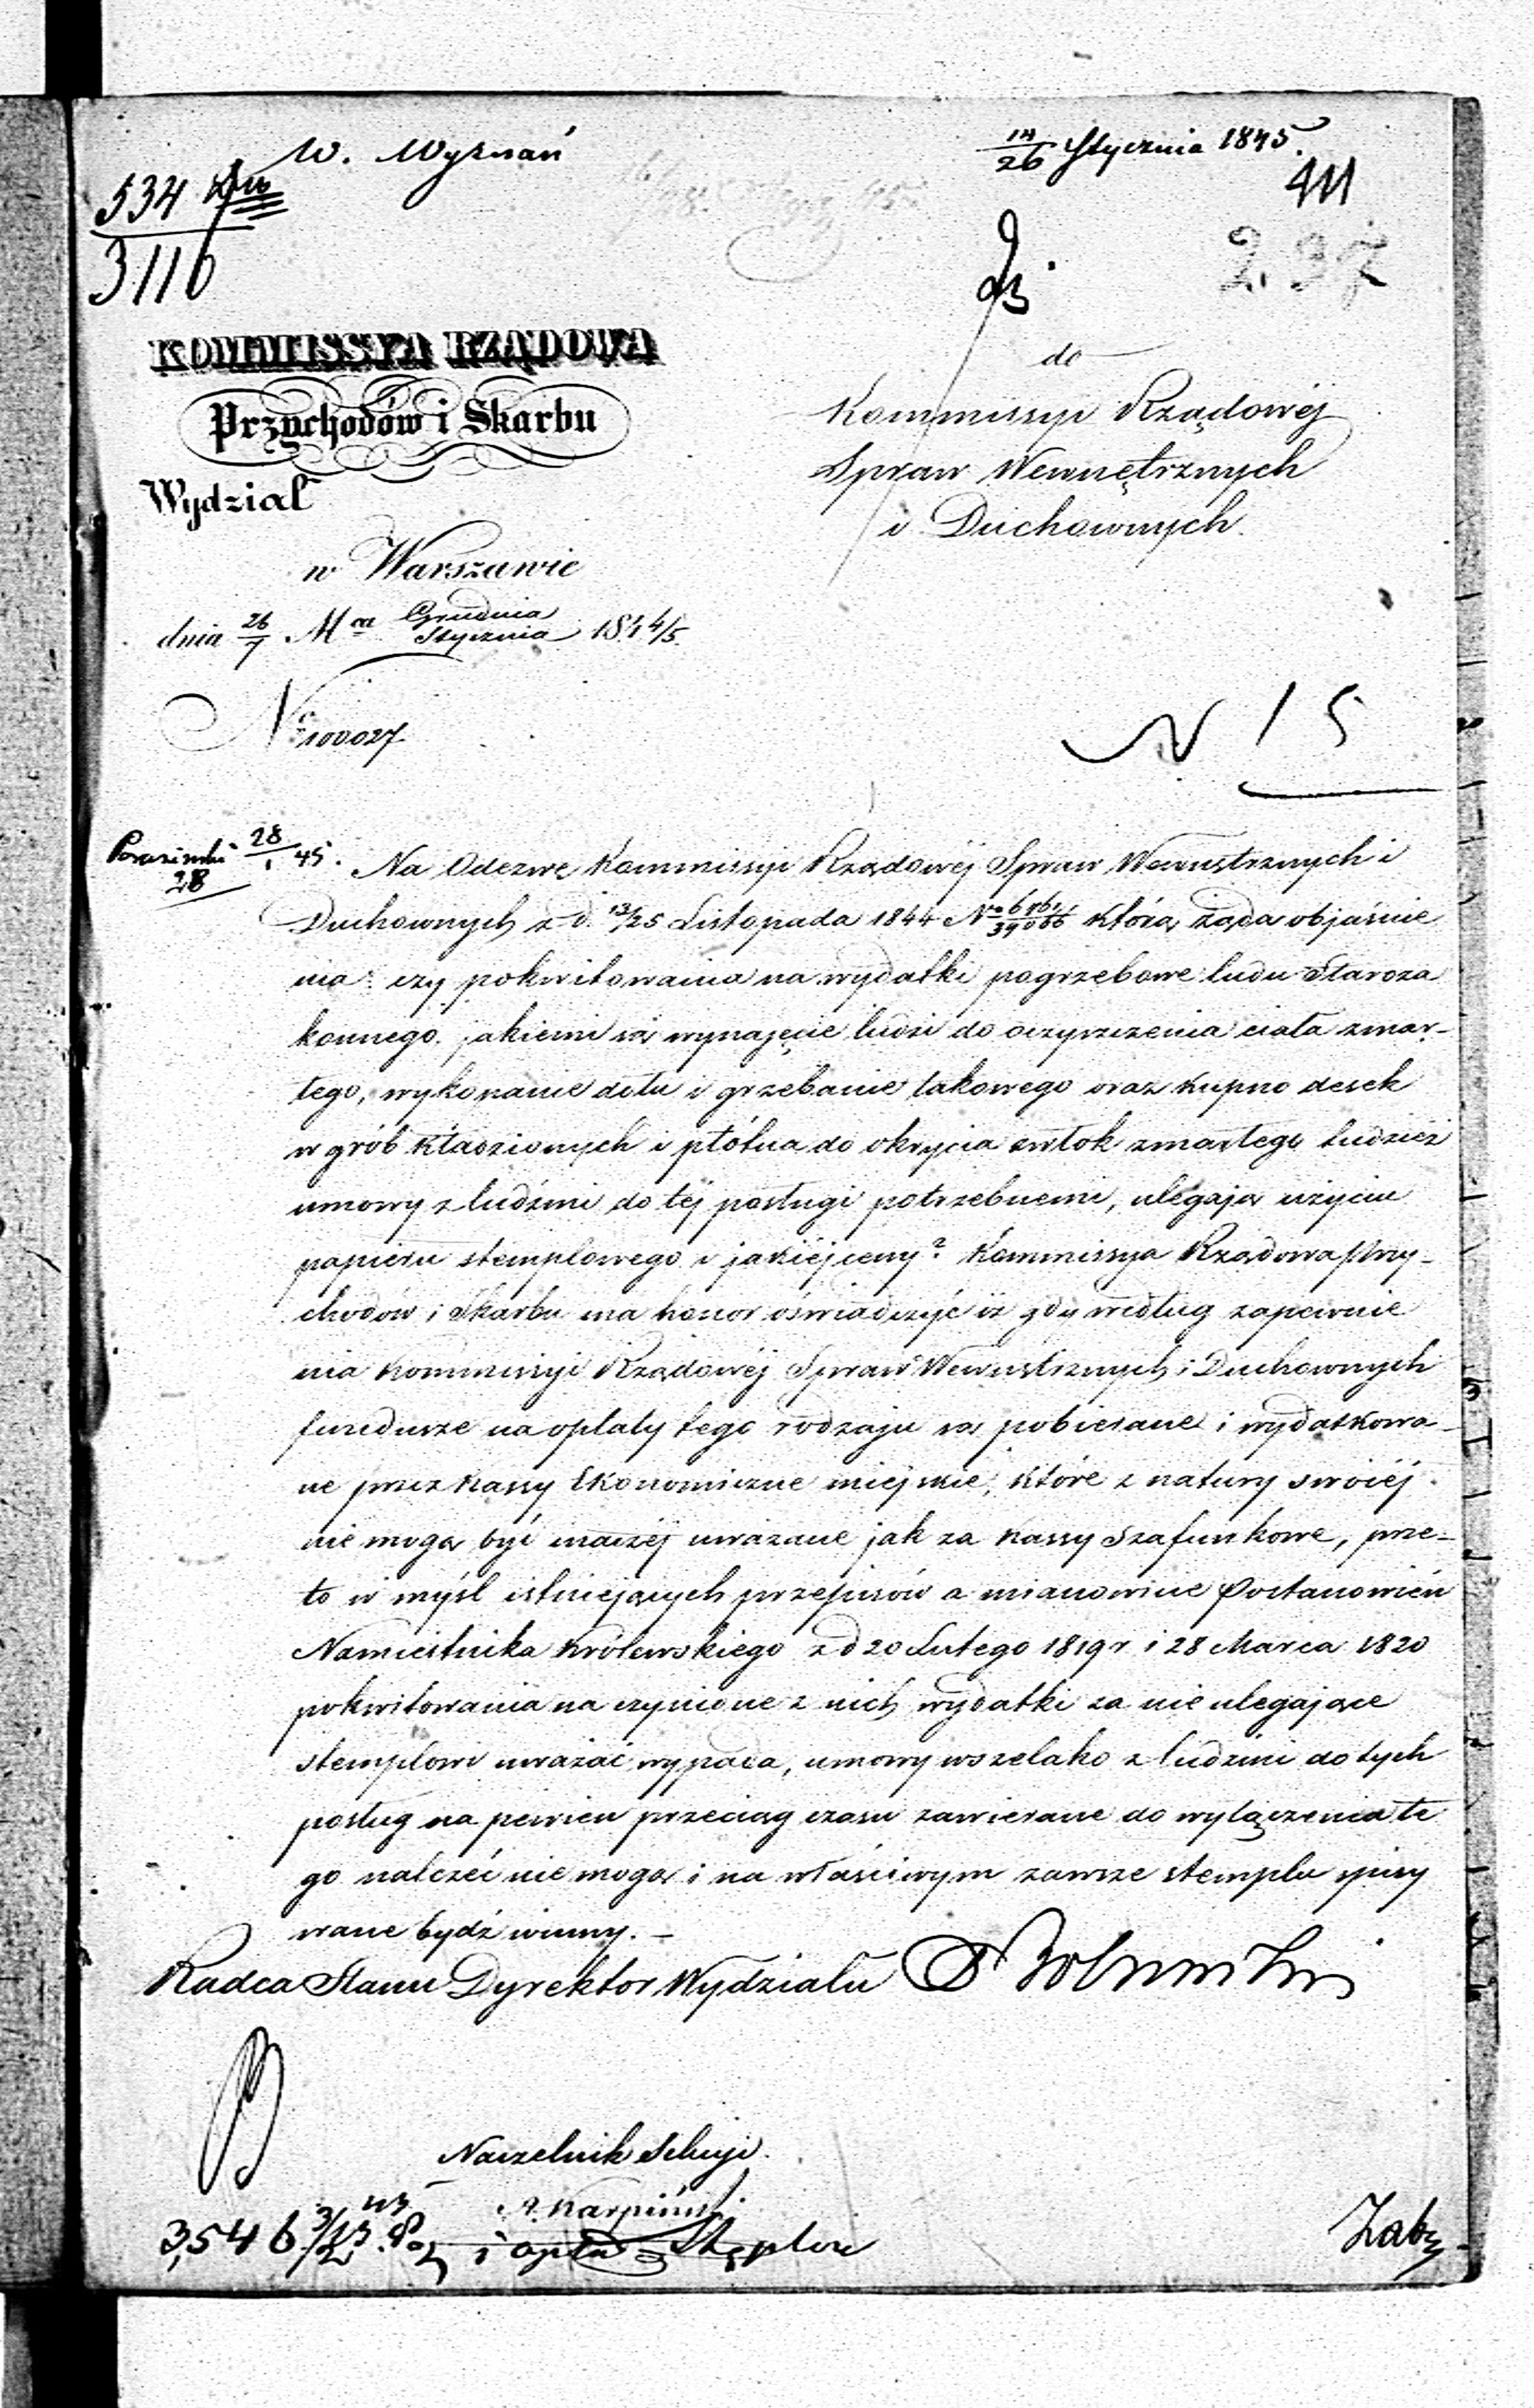 W. Wyznań
14/26 Stycznia 1845.
534
3116
411
237
KOMMISSYA RZĄDOWA
Przychodów i Skarbu
Wydział
w Warszawie
dnia 26/7 Mca Grudnia/Stycznia 1844/5.
No 100027
do
Kommissyi Rządowéj
Spraw Wewnętrznych
i Duchownych.
N 15
28/1 45.
28
Na Odezwę Kommissyi Rządowéj Spraw Wewnętrznych i
Duchownych z d. 13/25 Listopada 1844 No którą żąda objaśnie
nia: czy pokwitowania na wydatki pogrzebowe ludu Staroza
konnego jakiemi są wynajęcie ludzi do oczyszczenia ciała zmar-
łego, wykonanie dołu i grzebanie takowego oraz kupno desek
w grób kładzionych i płótna do okrycia zwłok zmarłego tudzież
umowy z ludźmi do téj posługi potrzebnemi, ulegają użyciu
papieru stemplowego i jakiéj ceny? Kommissya Rządowa Przy-
chodów i Skarbu ma honor oświadczyć iż gdy według zapewnie
nia Kommissyi Rządowéj Spraw Wewnętrznych i Duchownych
fundusze na opłaty tego rodzaju są pobierane i wydatkowa-
ne przez kassy Ekonomiczne miejskie, które z natury swoiéj
nie mogą być inaczéj uważane jak za kassy Szafunkowe, prze-
to w myśl istniejących przepisów a mianowicie Postanowień
Namiestnika Królewskiego z d 20 Lutego 1819 r i 28 Marca 1820
pokwitowania na czynione z nich wydatki za nie ulegające
stemplowi uważać wypada, umowy wszelako z ludźmi do tych
posług na pewien przeciąg czasu zawierane do wyłączenia te
go należeć nie mogą i na właściwym zawsze stemplu spisy
wane bydź winny. –
Radca Stanu Dyrektor Wydziału
Naczelnik Sekcyi.
A. Karpiński